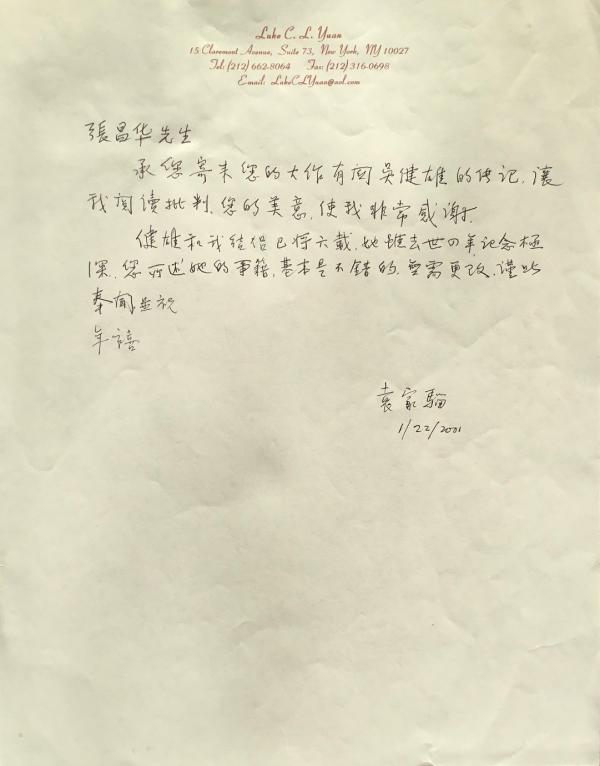 Luke C. L. Yuan
15 Claremont Avenue, Suite 73, New York, NY 10027
Tel: (212) 662-8064 Fax: (212) 316-0698
Email: LukeCLYuan@aol.com
張昌华先生
承您寄来您的大作有関吳健雄的传记，讓
我阅读批判，您的美意，使我非常感谢。
健雄和我结侣已将六载，她雖去世四年，记念極
深，您所述她的事籍，基本是不错的，無需更改，谨此
奉闻並祝
年禧
袁家騮
1/22/2001